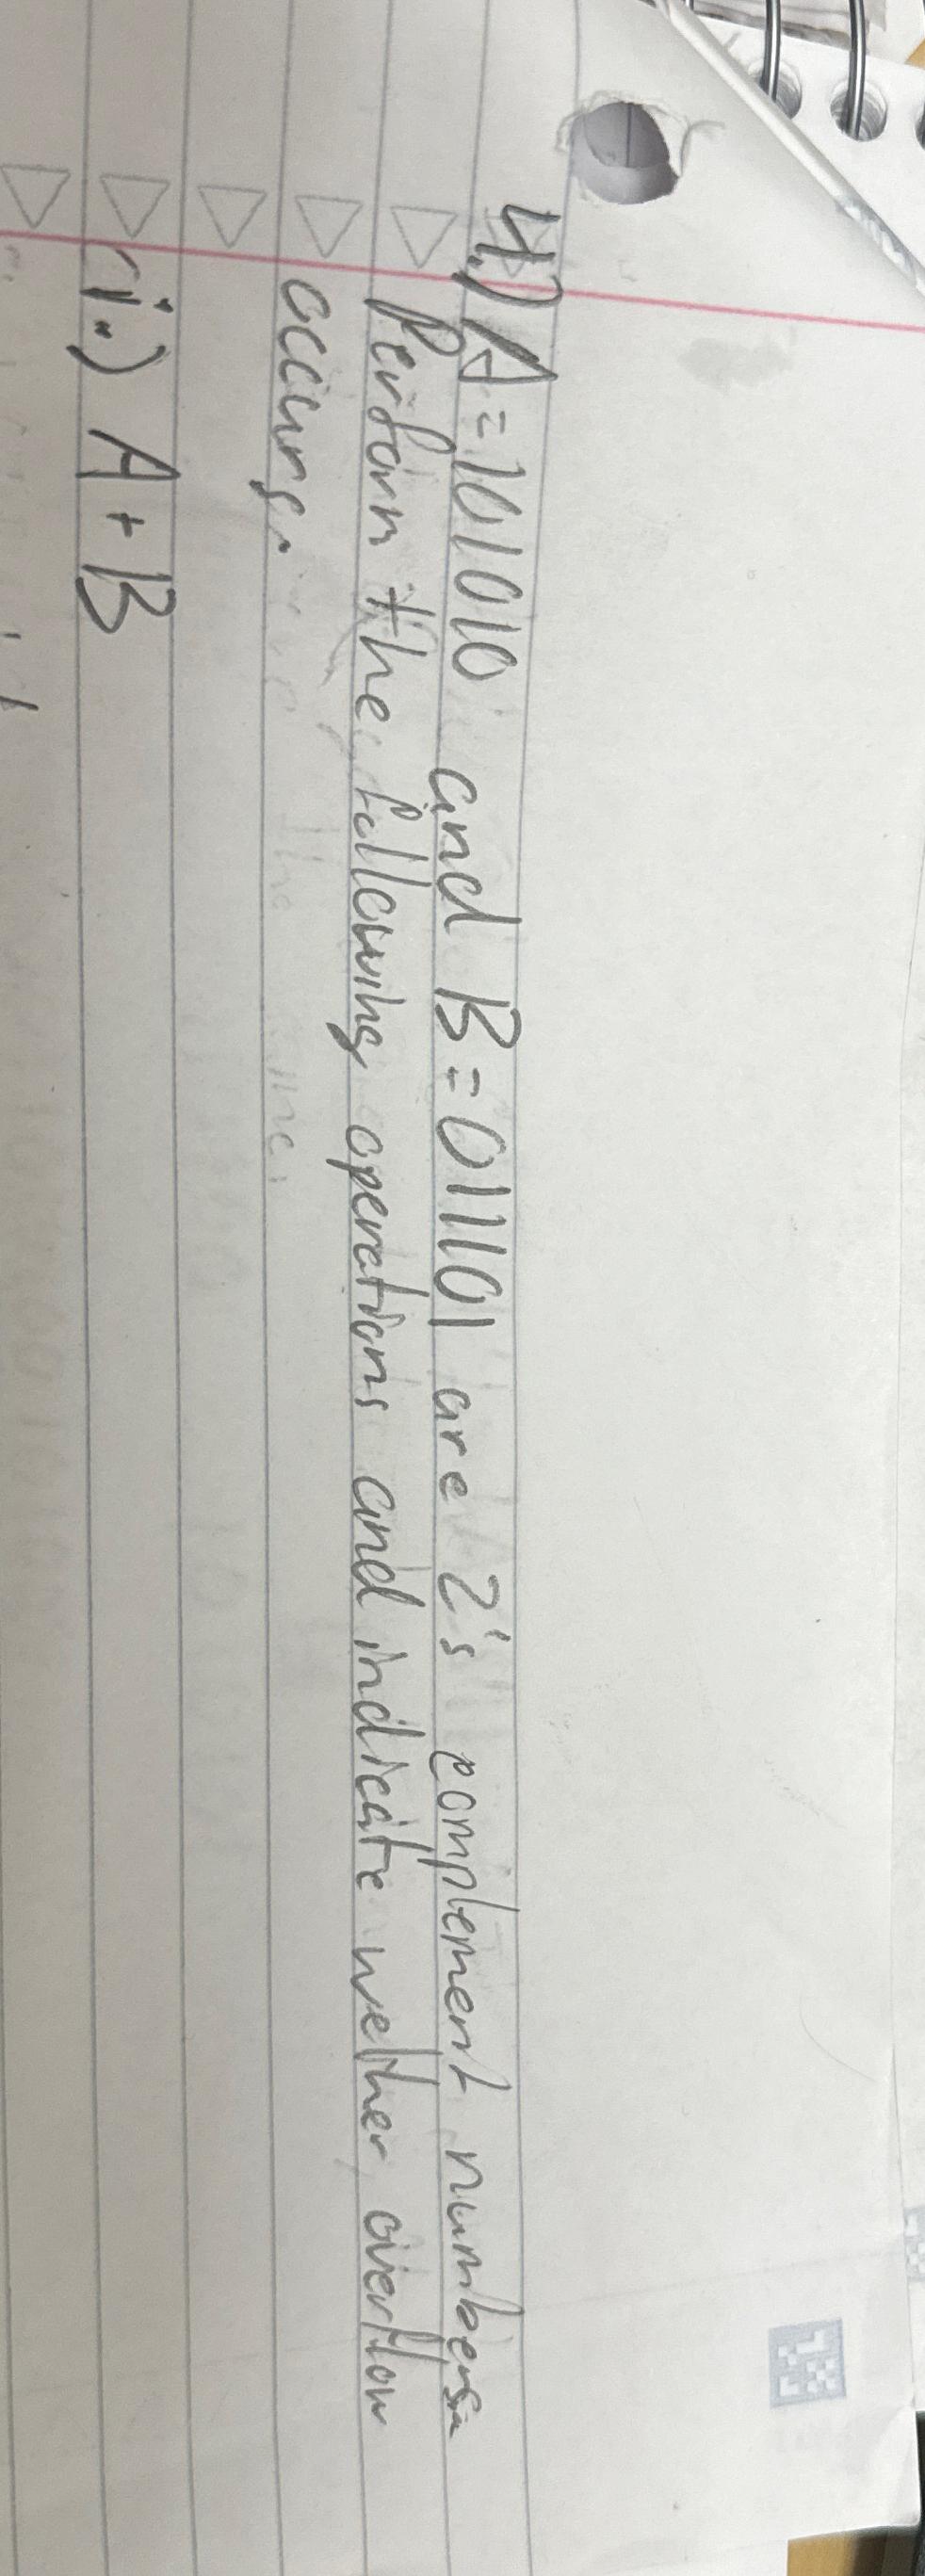 4.) A = 101010 and B = 011101 are 2's complement numbers.
Perform the following operations and indicate wether overflow
occurs.
i.) A + B